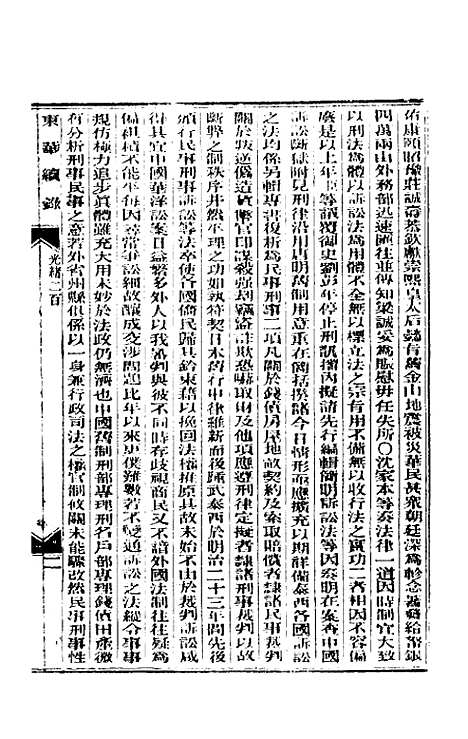 佑康頤昭豫莊誠壽恭欽獻崇熙皇太后懿旨舊金山地震被災華民甚衆朝廷深爲軫念着發給帑銀
四萬兩由外務部迅速匯往並傳知梁誠妥爲賑慰毋任失所〇沈家本等奏法律一道因時制宜大致
以刑法爲體以訴訟法爲用體不全無以標立法之宗旨用不備無以收行法之實功二者相因不容偏
廢是以上年臣等議覆御史劉彭年停止刑訊摺內擬請先行編輯簡明訴訟法等因奏明在案查中國
訴訟斷獄附見刑律沿用唐明舊制用意重在簡括揆諸今日情形亟應擴充以期詳備泰西各國訴訟
之法均係另輯專書復析爲民事刑事二項凡關於錢債房屋地畝契約及索取賠償者隸諸民事裁判
關於叛逆僞造貨幣官印謀殺強刼竊盜詐欺恐嚇取財及他項應遵刑律定擬者隸諸刑事裁判以故
斷弊之制秩序井然平理之功如執符契日本舊行中律維新而後踵武泰西於明治二十三年間先後
頒行民事刑事訴訟等法卒使各國僑民歸其鈐束藉以挽回法權推原其故未始不由於裁判訴訟咸
得其宜中國華洋訟案日益繁多外人以我審判與彼不同時存歧視商民又不諳外國法制往往疑爲
偏袒積不能平每因尋常爭訟細故釀成交涉問題比年以來更僕難數若不變通訴訟之法縱令事事
規仿極力追步眞體雖充大用未妙於法政仍無濟也中國舊制刑部專理刑名戶部專理錢債田產微
有分析刑事民事之意若外省州縣俱係以一身兼行政司法之權官制攸關未能驟改然民事刑事性
東華續錄
光緒二百